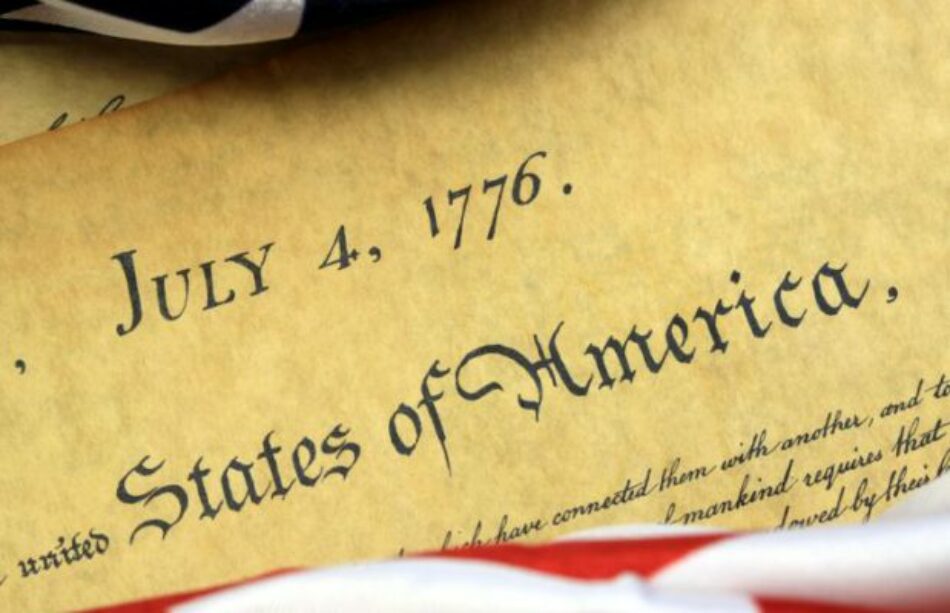 , JULY 4, 1776.
united States of America,
which have connected them with another, and to
mankind requires that
by their